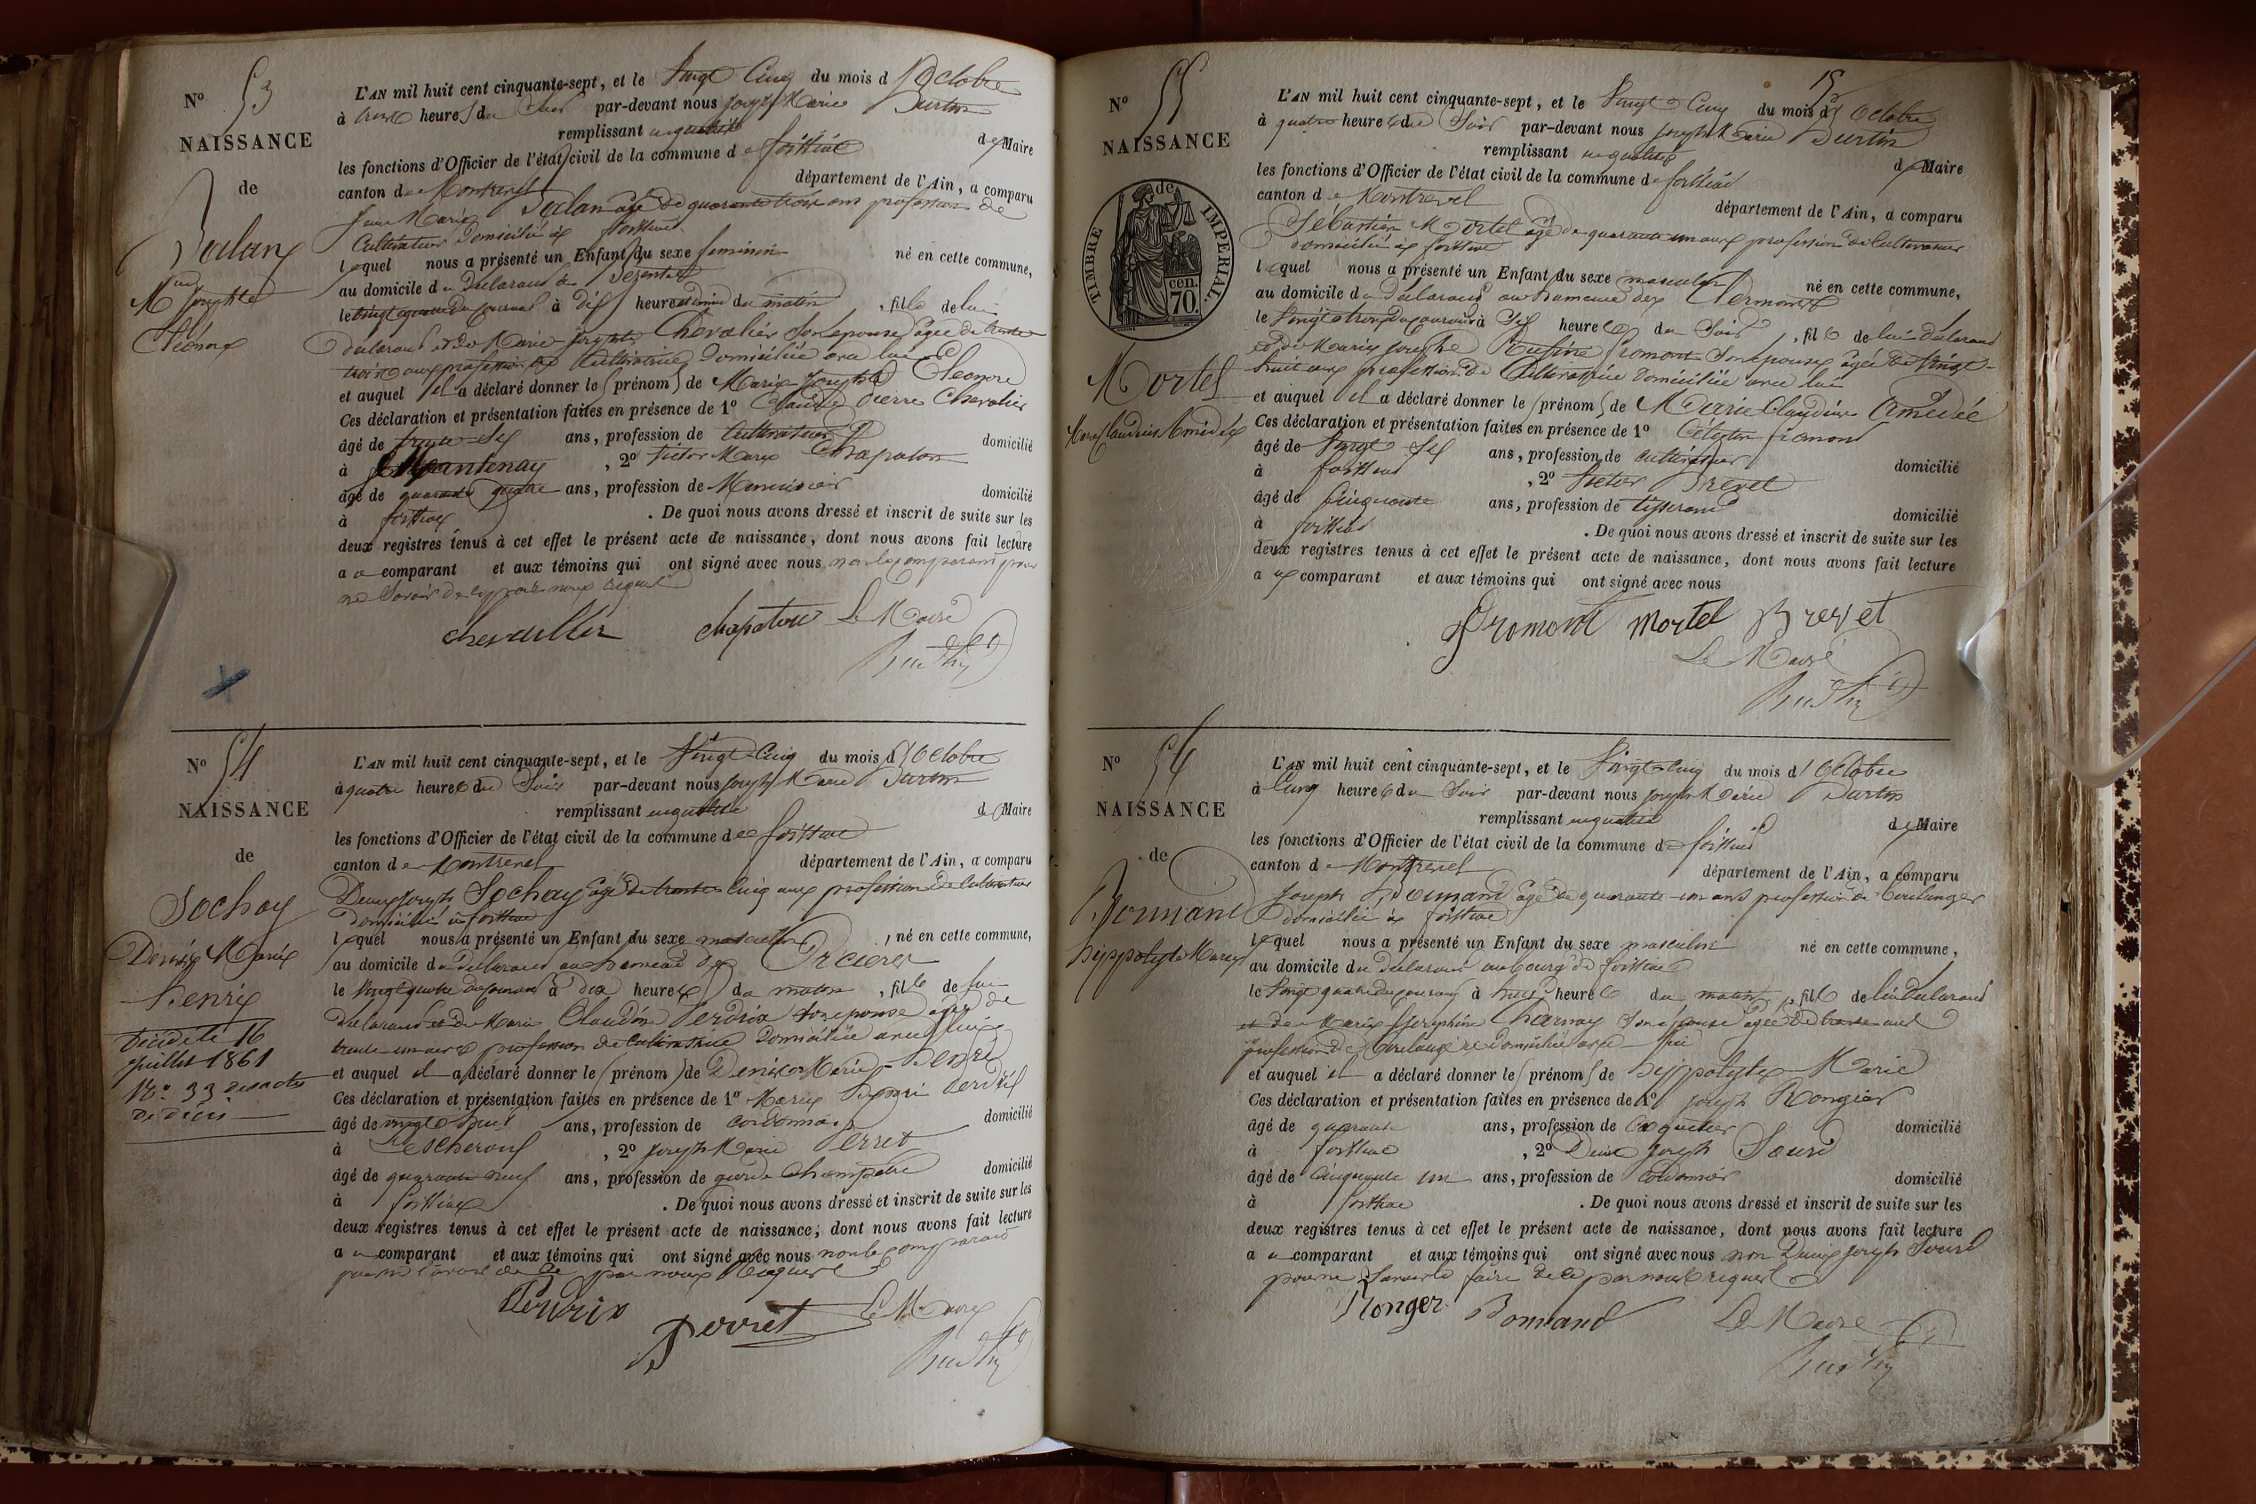 N° 53
NAISSANCE
de
Salan
M
Josephte
Eléonore
L'AN mil huit cent cinquante-sept, et le Vingt Cinq du mois d'Octobre
à trois heures du Soir par-devant nous Joseph Marie Burtin
remplissant en qualité de Maire
les fonctions d'Officier de l'état civil de la commune de foissiat
canton de Montrevel département de l'Ain, a comparu
Marie Salan âgé de quarante trois ans profession de
Cultivateur Domicilié à foissiat
lequel nous a présenté un Enfant du sexe feminin né en cette commune,
au domicile du Declarant
le vingt quatre du courant à dix heures et demie du matin, fille de lui
declarant et de Marie Josephte Chevalier Son epouse agée de trente
trois ans profession de Cultivatrice Domiciliée avec lui
et auquel il a déclaré donner le (prénom) de Marie Josephte Eleonore
Ces déclaration et présentation faites en présence de 1° Claude Pierre Chevalier
âgé de trente Six ans, profession de Cultivateur domicilié
à Mantenay, 2° Victor Marie Chapaton
âgé de quarante quatre ans, profession de Menuisier domicilié
à foissiat. De quoi nous avons dressé et inscrit de suite sur les
deux registres tenus à cet effet le présent acte de naissance, dont nous avons fait lecture
au comparant et aux témoins qui ont signé avec nous non le comparant pour
ne Savoir de ce par nous requis
chevallier chapaton Le Maire
Burtin
N° 54
NAISSANCE
de
Sochay
Denis Marie
Henri
Décédé le 16
juillet 1861
N° 33 des actes
de décès
L'AN mil huit cent cinquante-sept, et le Vingt Cinq du mois d'Octobre
à quatre heures du Soir par-devant nous Joseph Marie Burtin
remplissant en qualité de Maire
les fonctions d'Officier de l'état civil de la commune de foissiat
canton de Montrevel département de l'Ain, a comparu
Denis Joseph Sochay agé de trente Cinq ans profession de Cultivateur
domicilié à foissiat
lequel nous a présenté un Enfant du sexe masculin, né en cette commune,
au domicile du Declarant au hameau des Orcieres
le Vingt quatre du courant à dix heures du matin, fils de lui
Declarant et de Marie Claudine Perdrix Son epouse agée de
trente un ans profession de Cultivatrice Domiciliée avec lui
et auquel il a déclaré donner le (prénom) de Denis Marie Henri
Ces déclaration et présentation faites en présence de 1° Marie Henri Perdrix
âgé de vingt huit ans, profession de Cordonnier domicilié
à Lescheroux, 2° Joseph Marie Perret
âgé de quarante neuf ans, profession de garde Champêtre domicilié
à foissiat. De quoi nous avons dressé et inscrit de suite sur les
deux registres tenus à cet effet le présent acte de naissance, dont nous avons fait lecture
au comparant et aux témoins qui ont signé avec nous non le comparant
par nous Requis
Perdrix Perret Le Maire
Burtin
15
N° 55
NAISSANCE
de
TIMBRE IMPERIAL
70 cen.
Mortel
Marie Claudius Amédée
L'AN mil huit cent cinquante-sept, et le Vingt Cinq du mois d'Octobre
à quatre heures du Soir par-devant nous Joseph Marie Burtin
remplissant en qualité de Maire
les fonctions d'Officier de l'état civil de la commune de foissiat
canton de Montrevel département de l'Ain, a comparu
Sébastien Mortel agé de quarante un ans profession de Cultivateur
domicilié à foissiat
lequel nous a présenté un Enfant du sexe masculin né en cette commune,
au domicile du Declarant au hameau des
le Vingt trois du courant à Six heures du Soir, fils de lui Declarant
et de Marie Josephe Rufine fromont Son epouse agée de Vingt-
huit ans profession de Cultivatrice domiciliée avec lui
et auquel il a déclaré donner le (prénom) de Marie Claudius Amédée
Ces déclaration et présentation faites en présence de 1° Célestin fromont
âgé de Vingt Six ans, profession de Cultivateur domicilié
à foissiat, 2° Victor Brevet
âgé de Cinquante ans, profession de tisserand domicilié
à foissiat. De quoi nous avons dressé et inscrit de suite sur les
deux registres tenus à cet effet le présent acte de naissance, dont nous avons fait lecture
aux comparant et aux témoins qui ont signé avec nous
Fromont Mortel Brevet
Le Maire
Burtin
N° 56
NAISSANCE
de
Bonnand
hippolyte Marie
L'AN mil huit cent cinquante-sept, et le Vingt Cinq du mois d'Octobre
à Cinq heures du Soir par-devant nous Joseph Marie Burtin
remplissant en qualité de Maire
les fonctions d'Officier de l'état civil de la commune de foissiat
canton de Montrevel département de l'Ain, a comparu
Joseph Bonnand agé de quarante un ans profession de boulanger
domicilié à foissiat
lequel nous a présenté un Enfant du sexe masculin né en cette commune,
au domicile du Declarant au bourg de foissiat
le Vingt quatre du courant à trois heures du matin, fils de lui Declarant
et de Marie Josephine Charnay Son epouse agée de trente ans
profession de boulangère domiciliée avec lui
et auquel il a déclaré donner le (prénom) de hippolyte Marie
Ces déclaration et présentation faites en présence de 1° Joseph Rongier
âgé de quarante ans, profession de Coquetier domicilié
à foissiat, 2° Denis Joseph Sourd
âgé de Cinquante un ans, profession de Cordonnier domicilié
à foissiat. De quoi nous avons dressé et inscrit de suite sur les
deux registres tenus à cet effet le présent acte de naissance, dont nous avons fait lecture
au comparant et aux témoins qui ont signé avec nous non Denis Joseph Sourd
pour ne Savoir le faire de ce par nous requis
Ronger Bonnand Le Maire
Burtin